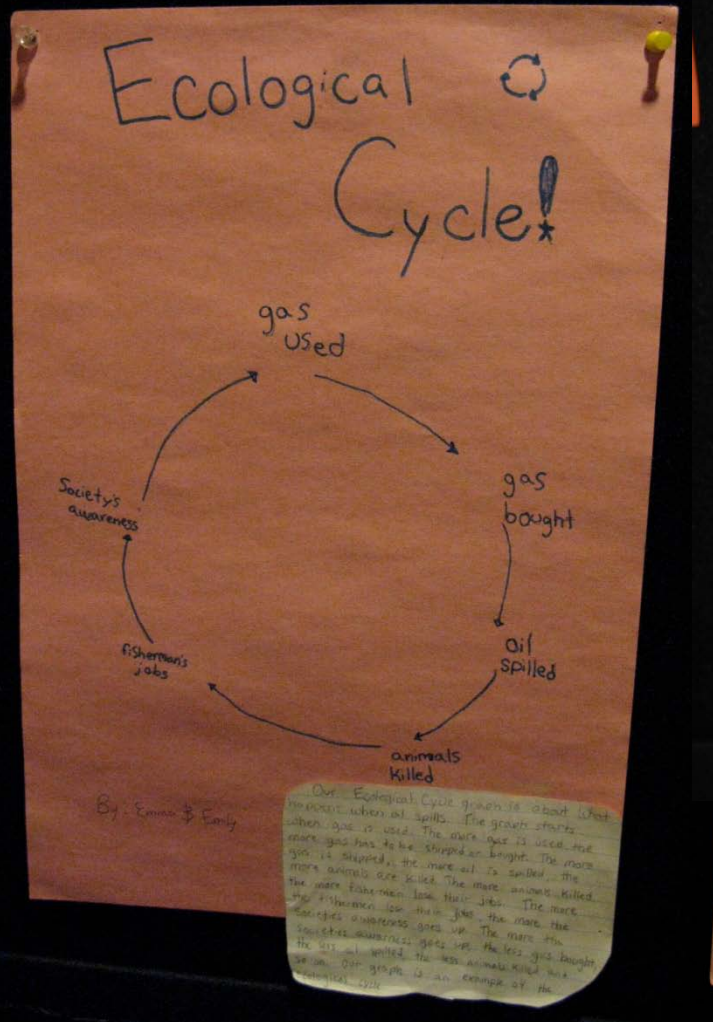 Ecological
Cycle!
gas
used
gas
bought
oil
spilled
animals
killed
fisherman's
jobs
Society's
awareness
By: Emma & Emily
Our Ecological Cycle graph is about what
happens when oil spills. The graph starts
when gas is used. The more gas is used, the
more gas has to be shipped or bought. The more
gas is shipped, the more oil is spilled, the
more animals are killed. The more animals killed,
the more fishermen lose their jobs. The more
the fishermen lose their jobs, the more the
societies awareness goes up. The more the
societies awarness goes up, the less gas bought,
the less oil spilled, the less animals killed and
so on. Our graph is an example of the
ecological cycle